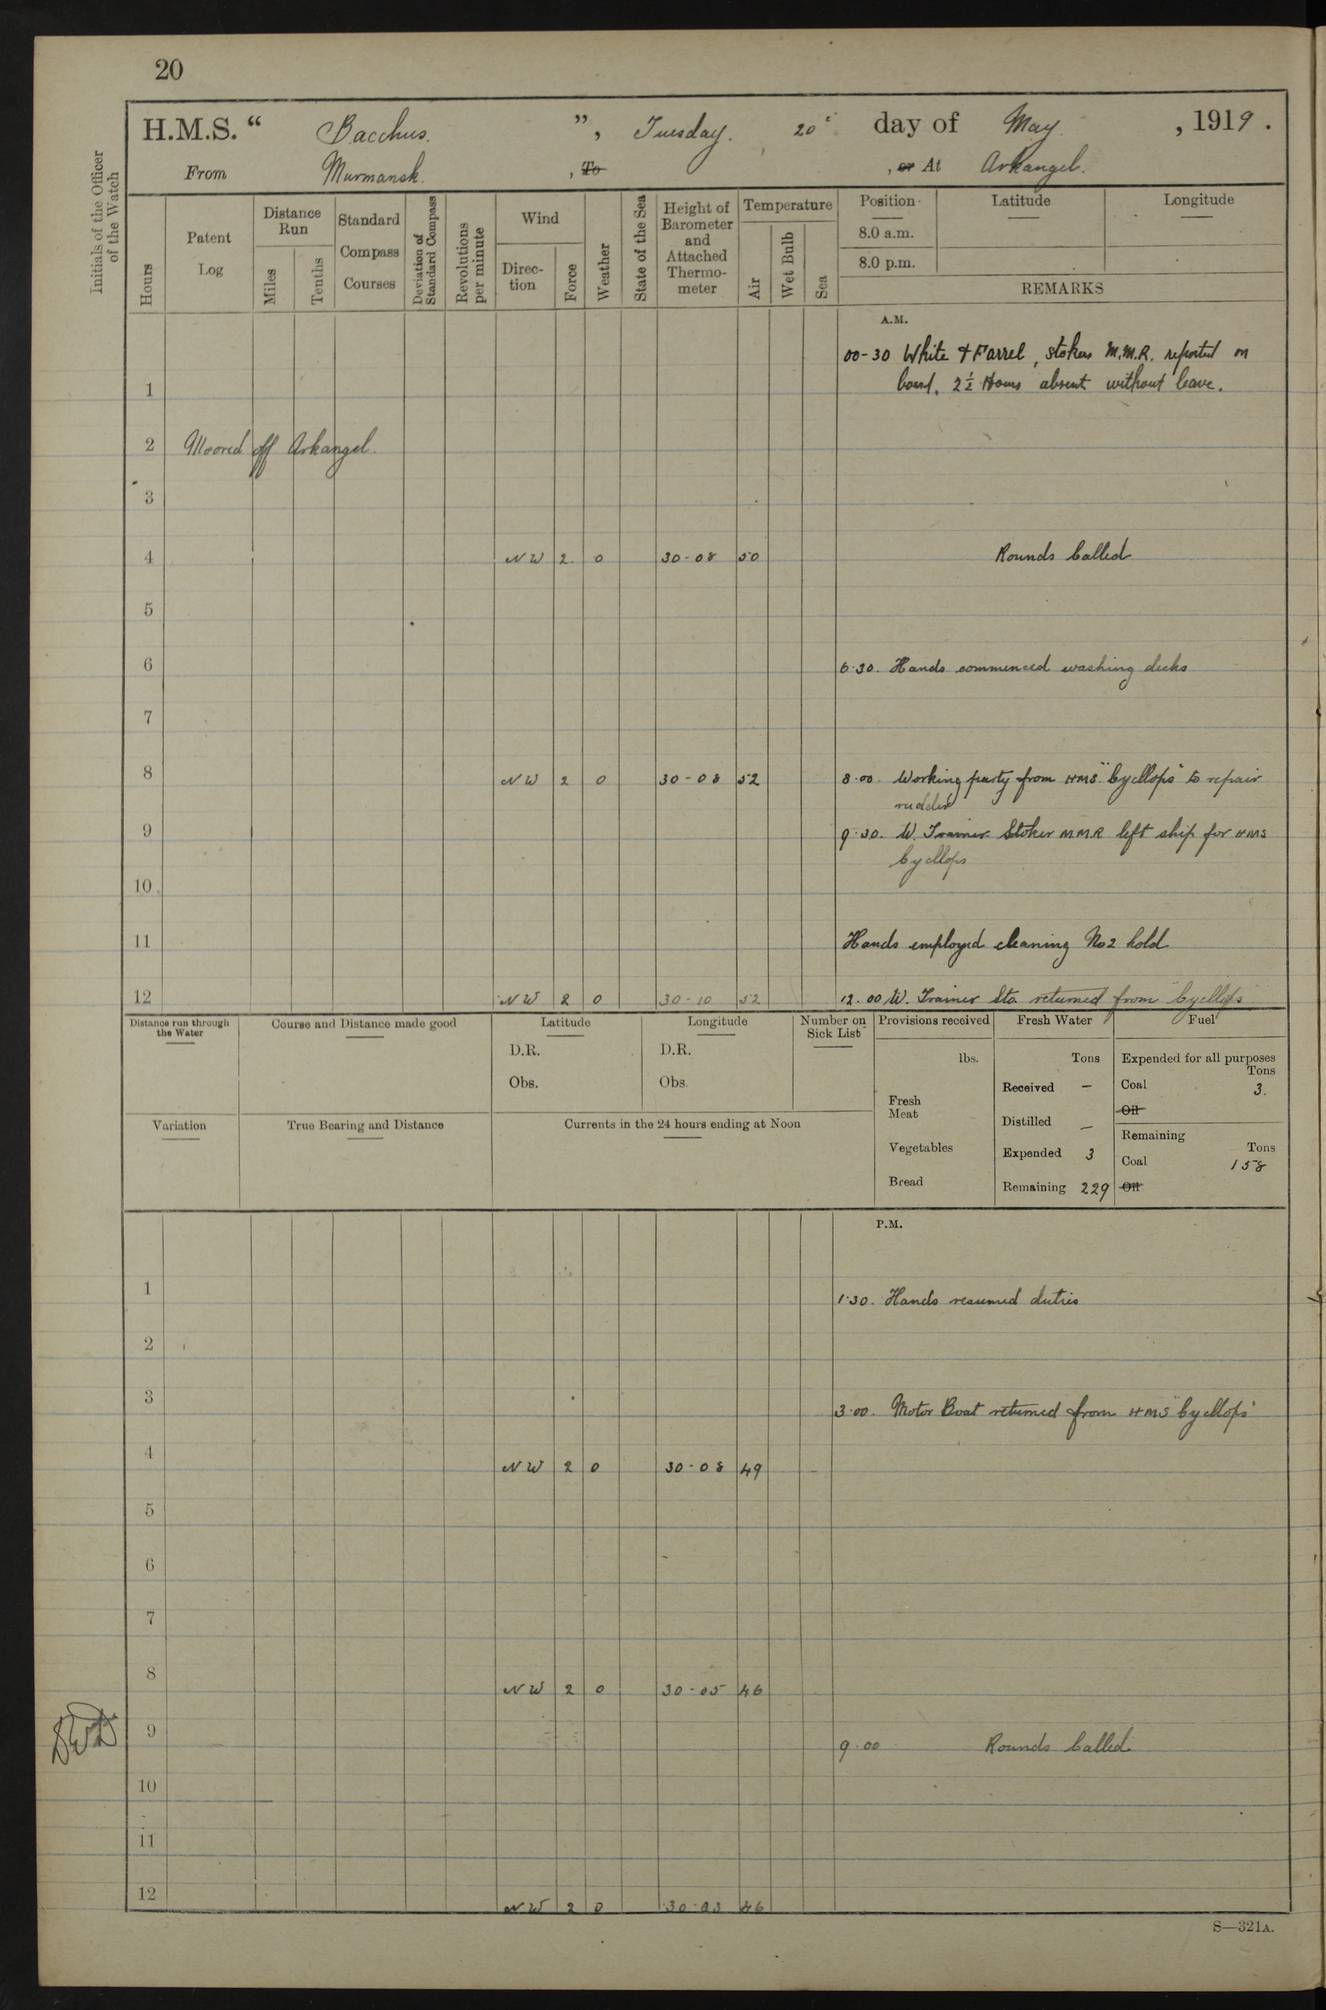 20
H.M.S. “ Bacchus. ”, Tuesday. 20 day of May , 1919.
From Murmansk. , To , or At Arkangel.
Initials of the Officer of the Watch
Hours
Patent Log
Distance Run
Miles
Tenths
Standard Compass Courses
Deviation of Standard Compass
Revolutions per minute
Wind
Direction
Force
Weather
State of the Sea
Height of Barometer and Attached Thermometer
Temperature
Air
Wet Bulb
Sea
Position
Latitude
Longitude
8.0 a.m.
8.0 p.m.
REMARKS
A.M.
00-30 White & Farrel, stokers M.M.R. reported on
1 board, 2½ Hours absent without leave.
2 Moored off Arkangel.
3
4 NW 2 0 30-08 50 Rounds Called
5
6 6.30. Hands commenced washing decks
7
8 NW 2 0 30-08 52 8.00. Working party from HMS "Cycllops" to repair
rudder
9 9.30. W. Trainer Stoker MMR left ship for HMS
Cycllops
10
11 Hands employed cleaning No 2 hold
12 NW 2 0 30-10 52 12.00 W. Trainer Sto returned from "Cycllops
Distance run through the Water
Course and Distance made good
Latitude
D.R.
Obs.
Longitude
D.R.
Obs.
Number on Sick List
Provisions received
lbs.
Fresh Meat
Vegetables
Bread
Fresh Water
Tons
Received —
Distilled —
Expended 3
Remaining 229
Fuel
Expended for all purposes
Tons
Coal 3.
Oil
Remaining
Tons
Coal 158
Oil
Variation
True Bearing and Distance
Currents in the 24 hours ending at Noon
P.M.
1 1.30. Hands resumed duties
2
3 3.00. Motor Boat returned from HMS "Cycllops"
4 NW 2 0 30-08 49
5
6
7
8 NW 2 0 30-05 46
9 9.00 Rounds Called
10
11
12 NW 2 0 30-03 46
S—321A.